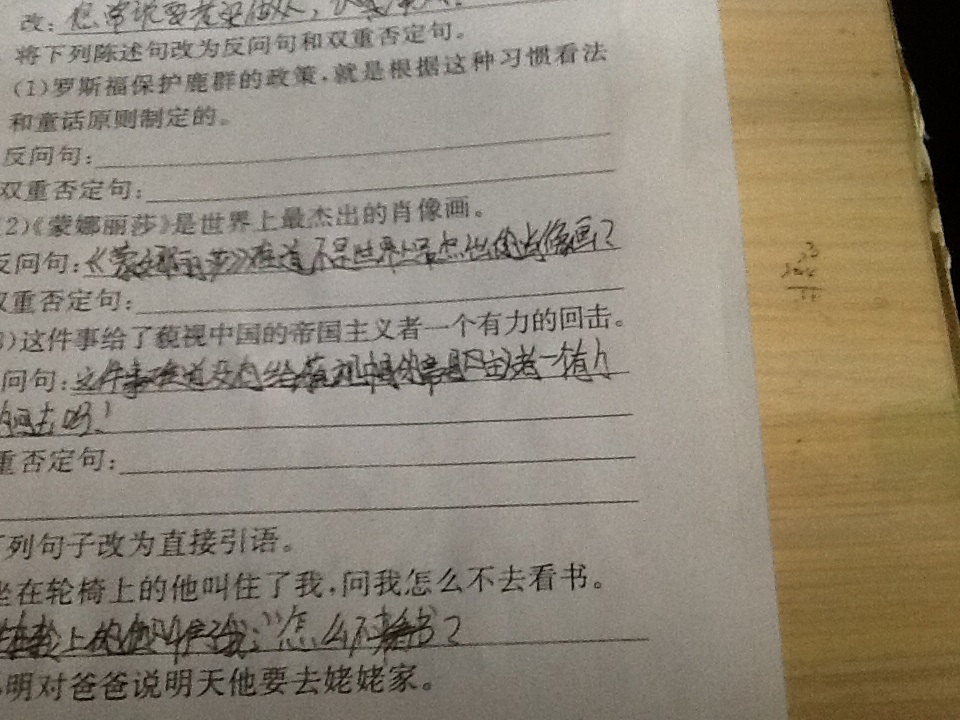 改：您常说要老实做人，
将下列陈述句改为反问句和双重否定句。
(1)罗斯福保护鹿群的政策，就是根据这种习惯看法
和童话原则制定的。
反问句：
双重否定句：
2)《蒙娜丽莎》是世界上最杰出的肖像画。
反问句：《蒙娜丽莎》难道不是世界上最杰出的肖像画？
双重否定句：
)这件事给了藐视中国的帝国主义者一个有力的回击。
问句：这件事难道没有给藐视中国的帝国主义者一个有力
的回击吗！
重否定句：
下列句子改为直接引语。
坐在轮椅上的他叫住了我，问我怎么不去看书。
上的他叫住了我：“怎么不看书？
明对爸爸说明天他要去姥姥家。